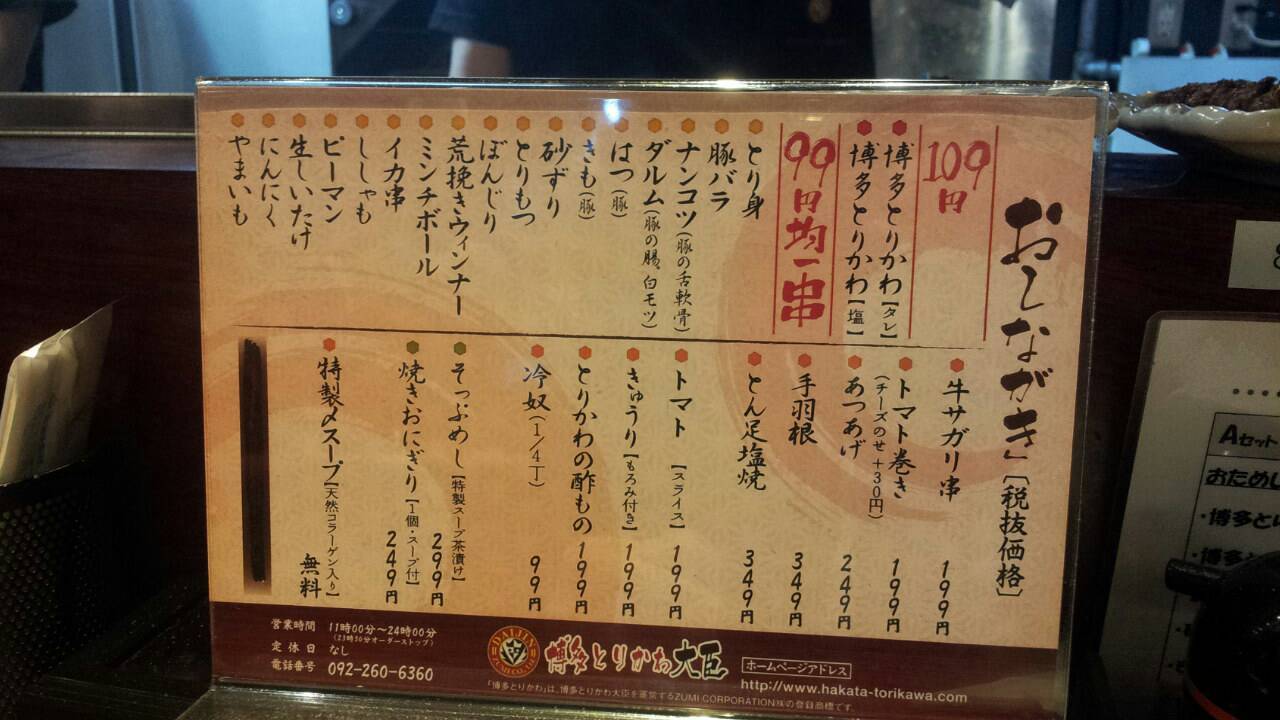 おしながき」［税抜価格］
109円
博多とりかわ【タレ】
博多とりかわ【塩】
99円均一串
とり身
豚バラ
ナンコツ（豚の舌軟骨）
ダルム（豚の腸、白モツ）
はつ（豚）
きも（豚）
砂ずり
とりもつ
ぼんじり
荒挽きウィンナー
ミンチボール
イカ串
ししゃも
ピーマン
生しいたけ
にんにく
やまいも
牛サガリ串 199円
トマト巻き 199円
（チーズのせ＋30円）
あつあげ 249円
手羽根 349円
とん足塩焼 349円
トマト【スライス】 199円
きゅうり【もろみ付き】 199円
とりかわの酢もの 199円
冷奴（1/4丁） 99円
そっぷめし【特製スープ茶漬け】 299円
焼きおにぎり【1個・スープ付】 249円
特製〆スープ【天然コラーゲン入り】 無料
営業時間 11時00分～24時00分
（23時30分オーダーストップ）
定休日 なし
電話番号 092-260-6360
DAIJIN
博多とりかわ大臣
ホームページアドレス
http://www.hakata-torikawa.com
「博多とりかわ」は、博多とりかわ大臣を運営するZUMI CORPORATION㈱の登録商標です。
Aセット
おためし
・博多とり
・博多